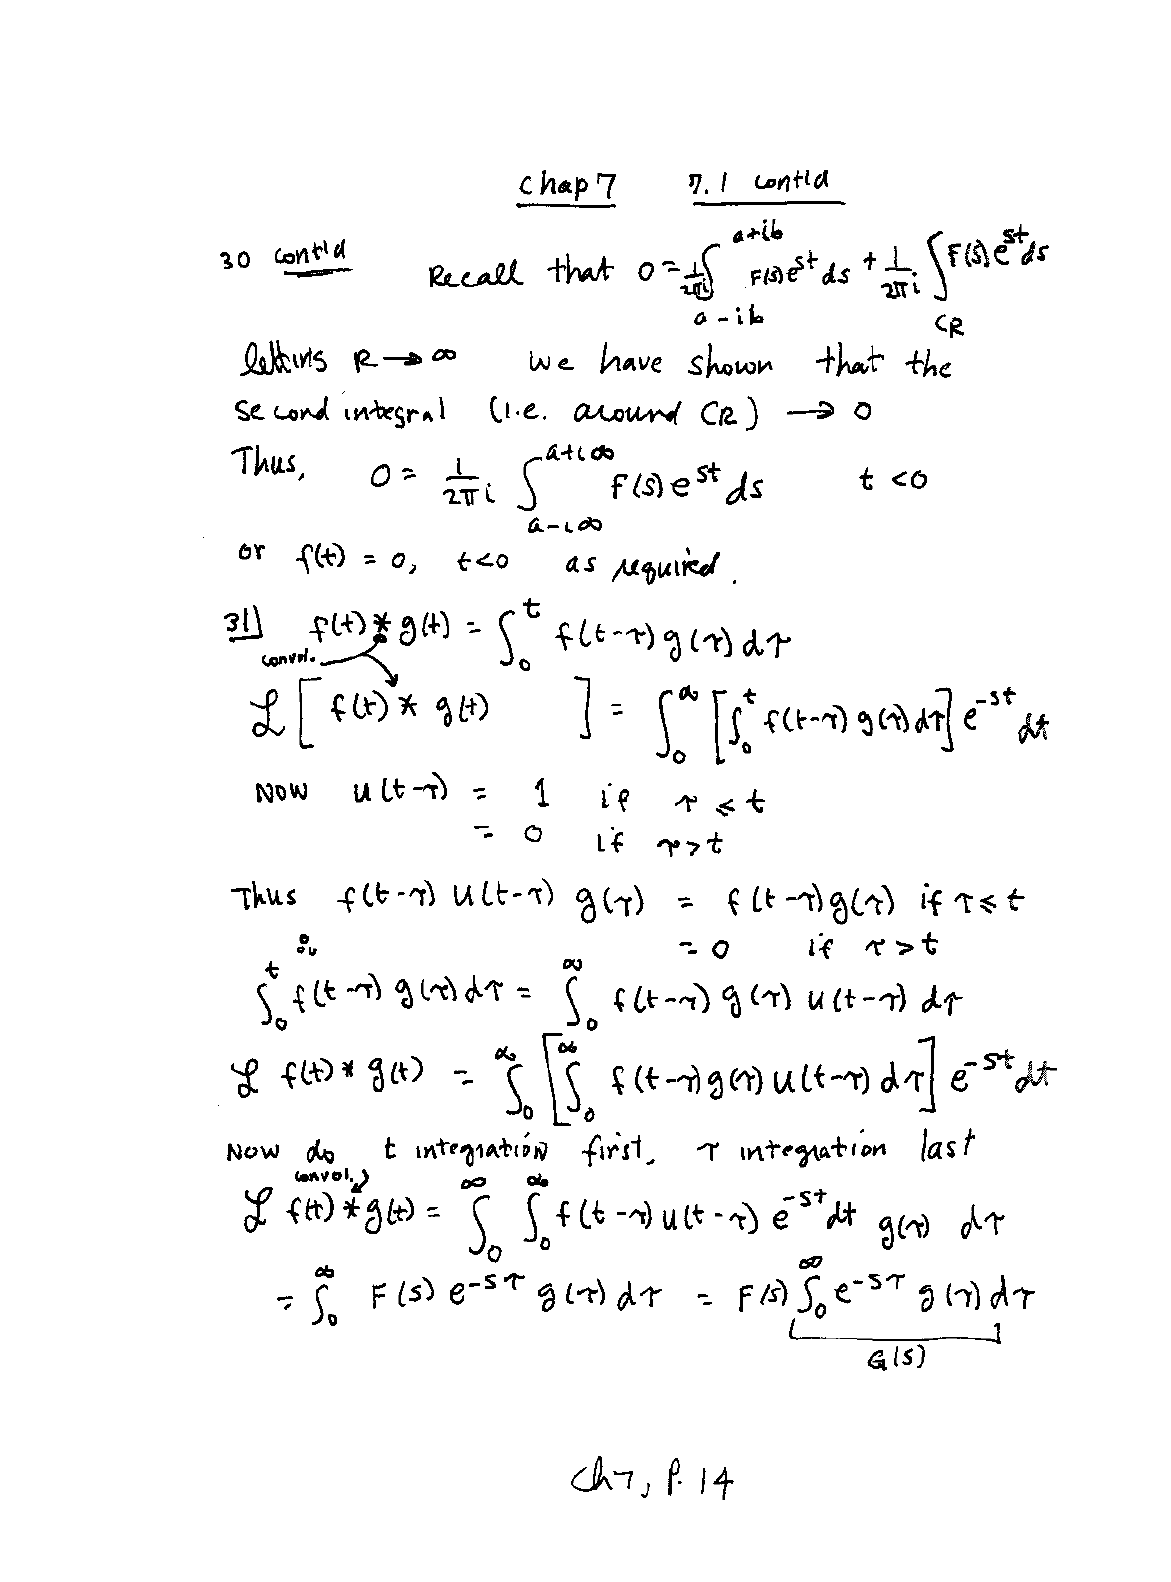 Chap 7 7.1 cont'd
30 cont'd Recall that 0 = 1/2πi ∫_{a-ib}^{a+ib} F(s) e^{st} ds + 1/2πi ∫_{CR} F(s) e^{st} ds
letting R → ∞ we have shown that the
second integral (i.e. around CR) → 0
Thus, 0 = 1/2πi ∫_{a-i∞}^{a+i∞} F(s) e^{st} ds t < 0
or f(t) = 0, t<0 as required.
31) f(t) * g(t) = ∫_0^t f(t-τ) g(τ) dτ
convol.
ℒ [ f(t) * g(t) ] = ∫_0^∞ [ ∫_0^t f(t-τ) g(τ) dτ ] e^{-st} dt
Now u(t-τ) = 1 if τ ≤ t
= 0 if τ > t
Thus f(t-τ) u(t-τ) g(τ) = f(t-τ) g(τ) if τ ≤ t
= 0 if τ > t
∫_0^t f(t-τ) g(τ) dτ = ∫_0^∞ f(t-τ) g(τ) u(t-τ) dτ
ℒ f(t) * g(t) = ∫_0^∞ [ ∫_0^∞ f(t-τ) g(τ) u(t-τ) dτ ] e^{-st} dt
Now do t integration first, τ integration last
convol.
ℒ f(t) * g(t) = ∫_0^∞ ∫_0^∞ f(t-τ) u(t-τ) e^{-st} dt g(τ) dτ
= ∫_0^∞ F(s) e^{-sτ} g(τ) dτ = F(s) ∫_0^∞ e^{-sτ} g(τ) dτ
G(s)
Ch7, p. 14